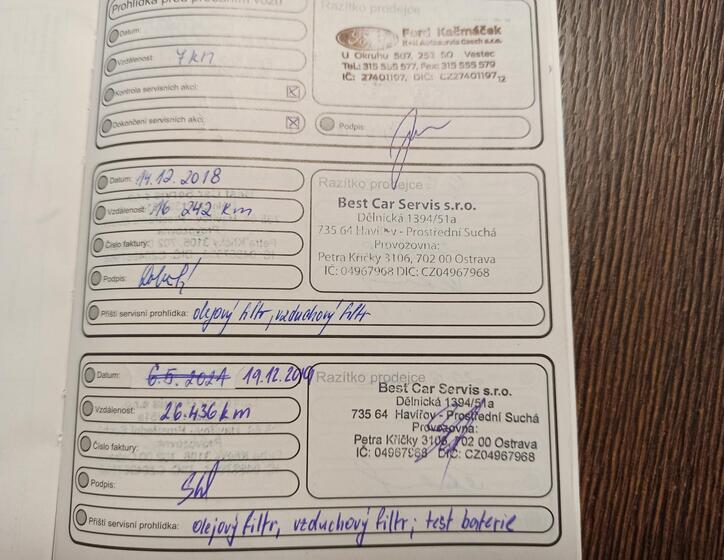 Prohlídka před předáním vozu
Razítko prodejce
Datum:
Ford Kačmáček
Ford Autoservis Czech s.r.o.
U Okruhu 507, 252 50 Vestec
Tel.: 315 555 577, Fax: 315 555 579
IČ: 27401197, DIČ: CZ27401197 12
Vzdálenost: 7 km
Kontrola servisních akcí:
Dokončení servisních akcí:
Podpis:
Datum: 14.12.2018
Razítko prodejce
Best Car Servis s.r.o.
Dělnická 1394/51a
735 64 Havířov - Prostřední Suchá
Provozovna:
Petra Křičky 3106, 702 00 Ostrava
IČ: 04967968 DIČ: CZ04967968
Vzdálenost: 16 242 km
Číslo faktury:
Podpis:
Příští servisní prohlídka: olejový filtr, vzduchový filtr
Datum: 6.5.2021 19.12.2019
Razítko prodejce
Best Car Servis s.r.o.
Dělnická 1394/51a
735 64 Havířov - Prostřední Suchá
Provozovna:
Petra Křičky 3106, 702 00 Ostrava
IČ: 04967968 DIČ: CZ04967968
Vzdálenost: 26.436 km
Číslo faktury:
Podpis:
Příští servisní prohlídka: olejový filtr, vzduchový filtr; test baterie